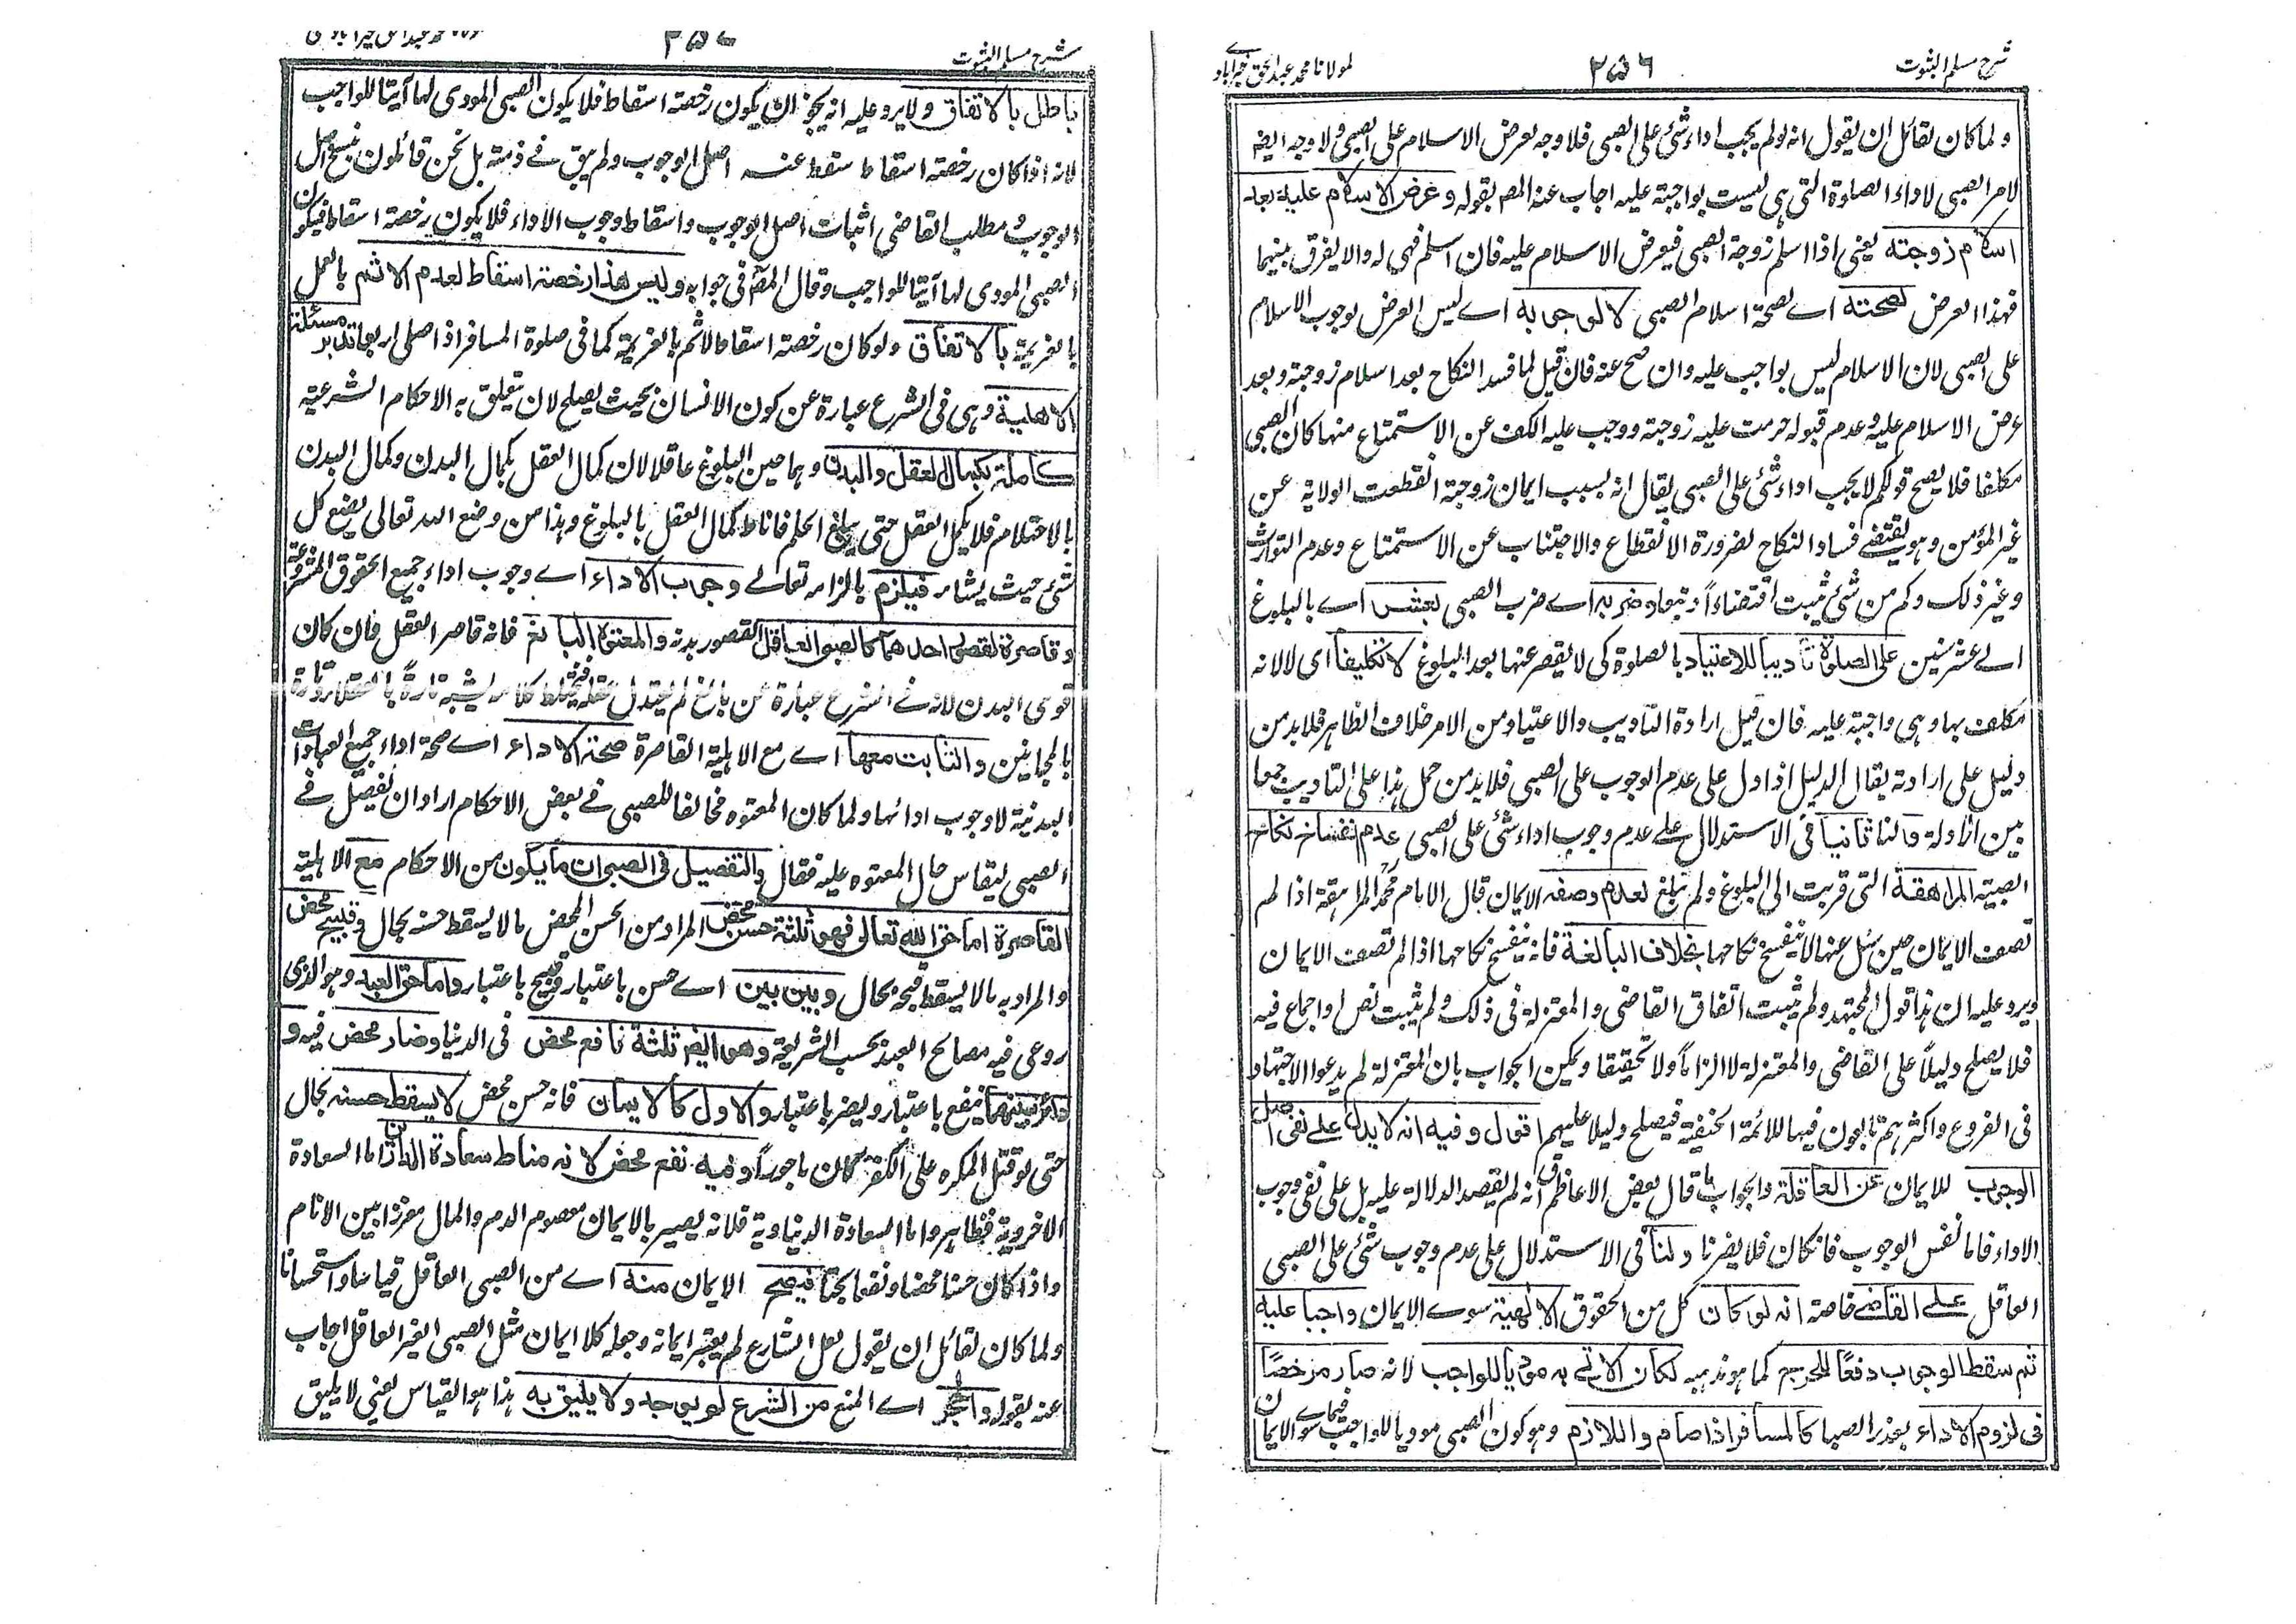 شرح مسلم الثبوت
٢٥٦
لمولانا محمد عبد الحق خيرآبادے
ولما كان لقائل ان يقول انه لو لم يجب اداء شئ على الصبى فلا وجه لعرض الاسلام على الصبى ولا وجه ايضا
لامر الصبى لاداء الصلوة التى هى ليست بواجبة عليه اجاب عنه المصر بقوله وعرض الاسلام عليه بعد
اسلام زوجته يعنى اذا اسلم زوجة الصبى فيعرض الاسلام عليه فان اسلم فهى له والا يفرق بينهما
فهذا العرض لصحته اے لصحة اسلام الصبى لا لوجوبه اے ليس العرض لوجوب الاسلام
على الصبى لان الاسلام ليس بواجب عليه وان صح عنه فان قيل لما فسد النكاح بعد اسلام زوجته وبعد
عرض الاسلام عليه وعدم قبوله حرمت عليه زوجته ووجب عليه الكف عن الاستمتاع منها كان الصبى
مكلفا فلا يصح قولكم لا يجب اداء شئ على الصبى يقال انه بسبب ايمان زوجته انقطعت الولاية عن
غير المؤمن وهو يقتضے فساد النكاح لضرورة الانقطاع والاجتناب عن الاستمتاع وعدم التوارث
وغير ذلك وكم من شئ يثبت اقتضاءاً وتبعا وضربه اے ضرب الصبى لعشر اے بالبلوغ
الے عشر سنين على الصلوة تأديبا للاعتياد بالصلوة كى لا يقصر عنها بعد البلوغ لا تكليفا اى لا لانه
مكلف بها وهى واجبة عليه فان قيل ارادة التاديب والاعتياد من الامر خلاف الظاهر فلا بد من
دليل على ارادته يقال الدليل اذا دل على عدم الوجوب على الصبى فلا بد من حمل هذا على التاديب جمعا
بين الادلة ولنا ثانيا فى الاستدلال علے عدم وجوب اداء شئ على الصبى عدم انفساخ نكاح
الصبية المراهقة التى قربت الى البلوغ ولم تبلغ لعدم وصف الايمان قال الامام محمد المراهقة اذا لم
تصف الايمان حين سئل عنها لا ينفسخ نكاحها بخلاف البالغة فانه ينفسخ نكاحها اذا لم تصف الايمان
ويرد عليه ان هذا قول المجتهد ولم يثبت اتفاق القاضى والمعتزلة فى ذلك ولم يثبت نص واجماع فيه
فلا يصلح دليلاً على القاضى والمعتزلة لا الزاماً ولا تحقيقا ويمكن الجواب بان المعتزلة لم يدعوا الاجتهاد
فى الفروع واكثرهم تابعون فيها للائمة الحنفية فيصلح دليلا عليهم اقول وفيه انه لا يدل علے نفى اصل
الوجوب للايمان عن العاقلة والجواب ما قال بعض الاعاظم ان لم يقصد الدلالة عليه بل على نفى وجوب
الاداء فاما نفس الوجوب فان كان فلا يضرنا ولنا فى الاستدلال على عدم وجوب شئ على الصبى
العاقل علے القاضے خاصة انه لو كان كل من الحقوق الالهية سوے الايمان واجبا عليه
ثم سقط الوجوب دفعًا للحرج كما هو مذهبه لكان الاتے به موديا للواجب لانه صار مرخصًا
فى لزوم الاداء بعذر الصبا كالمسافر اذا صام واللازم وهو كون الصبى موديا للواجب فيما سوے الايمان
شرح مسلم الثبوت
باطل بالاتفاق ولا يرد عليه انه يجوز ان يكون رخصته اسقاط فلا يكون الصبى المودى لها آتيا للواجب
لانه اذا كان رخصته اسقاطا سقط عنه اصل الوجوب ولم يبق فے ذمته بل نحن قائلون بنسخ اصل
الوجوب ومطلب القاضى اثبات اصل الوجوب واسقاط وجوب الاداء فلا يكون رخصة اسقاط فيكون
الصبى المودى لها آتيا للواجب وقال المصر فى جوابه وليس هذا رخصة اسقاط لعدم الاثم بالعمل
بالعزيمة بالاتفاق ولو كان رخصته اسقاط لاثم بالعزيمة كما فى صلوة المسافر اذا صلى اربعا تدبر مسئلة
الاهلية وهى فى الشرع عبارة عن كون الانسان بحيث يصلح لان يتعلق به الاحكام الشرعية
كاملة بكمال العقل والبدن وهما حين البلوغ عاقلا لان كمال العقل بكمال البدن وكمال البدن
بالاحتلام فلا يكمل العقل حتى يبلغ الحلم فاناط كمال العقل بالبلوغ وهذا من وضع الله تعالى يضع كل
شئ حيث يشاء فيلزم بالزامه تعالے وجوب الاداء اے وجوب اداء جميع الحقوق المشروعة
وقاصرة لقصور احدهما كالصبى العاقل لقصور بدنه والمعتوه البالغ فانه قاصر العقل فان كان
قوى البدن لانه فے الشرع عبارة عن بالغ لم يعتدل عقله فيختلط كلامه يشبه تارةً بالعقلاء وتارة
بالمجانين والثابت معها اے مع الاهلية القاصرة صحة الاداء اے صحة اداء جميع العبادات
البدنية لا وجوب ادائها ولما كان المعتوه مخالفا للصبى فے بعض الاحكام اراد ان يفصل فے
الصبى ليقاس حال المعتوه عليه فقال والتفصيل فى الصبى ان ما يكون من الاحكام مع الاهلية
القاصرة اما حق الله تعالى فهو ثلثة حسن محض المراد من الحسن المحض ما لا يسقط حسنه بحال وقبيح محض
والمراد به ما لا يسقط قبحه بحال وبين بين اے حسن باعتبار وقبيح باعتبار واما حق العبد وهو الذى
روعى فيه مصالح العبد بحسب الشريعة وهو ايضر ثلثة نافع محض فى الدنيا وضار محض فيه و
دائر بينهما ينفع باعتبار ويضر باعتبار والاول كالايمان فانه حسن محض لا يسقط حسنه بحال
حتى لو قتل المكره على الكفر كان ماجوراً وفيه نفع محض لانه مناط سعادة الدارين اما السعادة
الاخروية فظاهر واما السعادة الدنياوية فلانه يصير بالايمان معصوم الدم والمال معززا بين الانام
واذا كان حسنا محضا ونفعا بحتا فيصح الايمان منه اے من الصبى العاقل قياسا واستحسانا
ولما كان لقائل ان يقول لعل الشارع لم يعتبر ايمانه وجعله كلا ايمان مثل الصبى الغير العاقل اجاب
عنه بقوله والحجر اے المنع من الشرع لم يوجد ولا يليق به هذا هو القياس يعنى لا يليق